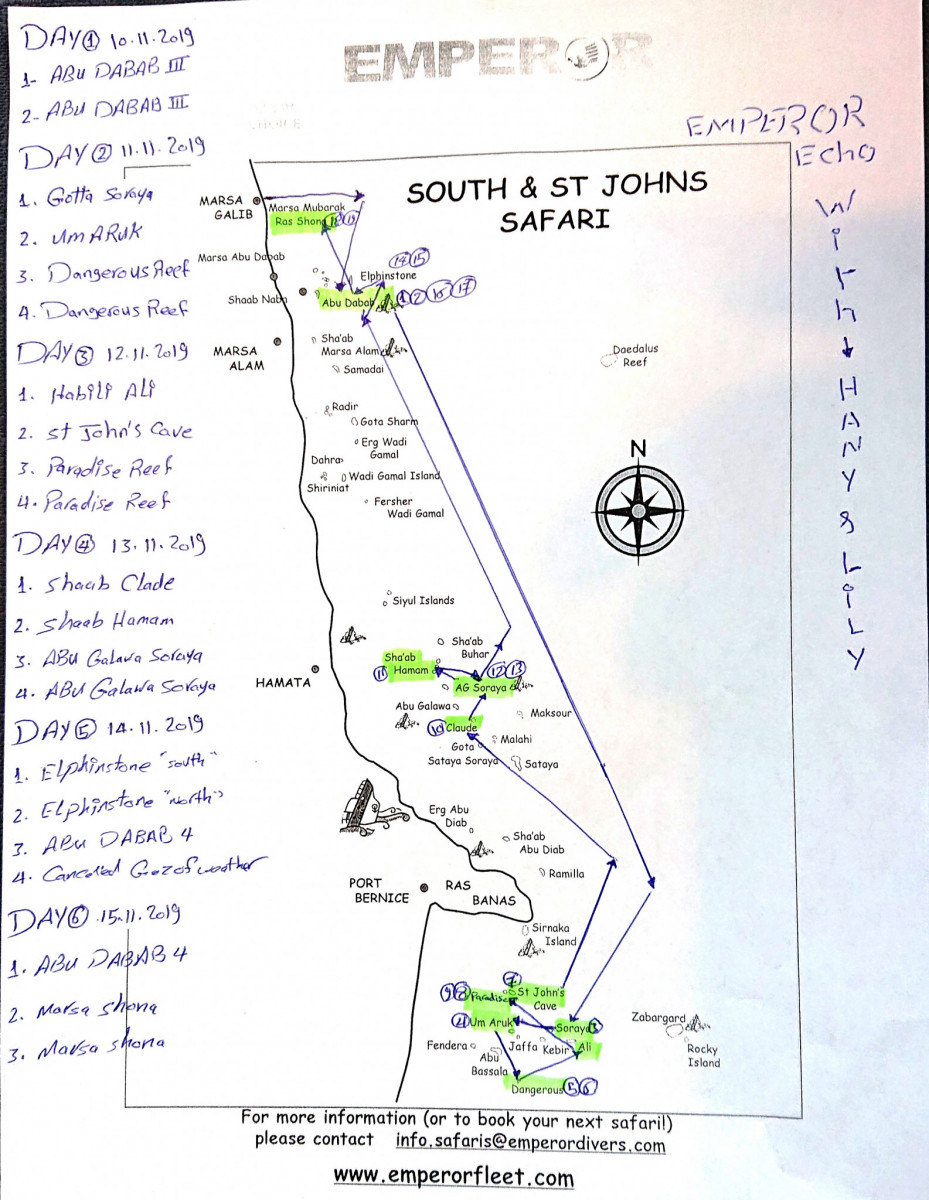 DAY① 10.11.2019
1- ABU DABAB III
2- ABU DABAB III
DAY② 11.11.2019
1. Gotta Soraya
2. UM ARUK
3. Dangerous Reef
4. Dangerous Reef
DAY③ 12.11.2019
1. Habili Ali
2. St John's Cave
3. Paradise Reef
4. Paradise Reef
DAY④ 13.11.2019
1. Shaab Clade
2. Shaab Hamam
3. ABU Galawa Soraya
4. ABU Galawa Soraya
DAY⑤ 14.11.2019
1. Elphinstone "south"
2. Elphinstone "north"
3. ABU DABAB 4
4. Cancelled of weather
DAY⑥ 15.11.2019
1. ABU DABAB 4
2. Marsa Shona
3. Marsa Shona
EMPEROR
EMPEROR
Echo
With
HANY & LiLY
SOUTH & ST JOHNS
SAFARI
MARSA
GALIB
Marsa Mubarak
Ras Shona 18 19
Marsa Abu Dabab
Elphinstone 14 15
Shaab Naba
Abu Dabab 1 2 16 17
MARSA
ALAM
Sha'ab
Marsa Alam
Samadai
Daedalus
Reef
Radir
Gota Sharm
Erg Wadi
Gamal
Dahra
Wadi Gamal Island
Shiriniat
Fersher
Wadi Gamal
N
Siyul Islands
Sha'ab
Buhar
Sha'ab
11 Hamam
12 13
AG Soraya
HAMATA
Abu Galawa
Maksour
10 Claude
Malahi
Gota
Sataya Soraya
Sataya
Erg Abu
Diab
Sha'ab
Abu Diab
Ramilla
PORT
BERNICE
RAS
BANAS
Sirnaka
Island
7
St John's
Cave
9 8 Paradise
4 Um Aruk
Soraya 3
Zabargard
Rocky
Island
Fendera
Jaffa
Kebir
Ali
Abu
Bassala
Dangerous 5 6
For more information (or to book your next safari!)
please contact info.safaris@emperordivers.com
www.emperorfleet.com